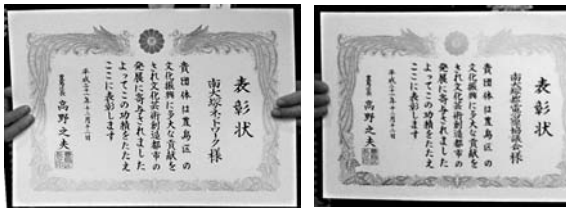 表彰状
南大塚ネットワーク様
貴団体は豊島区の
文化振興に多大な貢献を
され文化芸術創造都市の
発展に寄与されました
よってこの功績をたたえ
ここに表彰します
豊島区長 高野之夫
表彰状
南大塚都電沿線協議会様
貴団体は豊島区の
文化振興に多大な貢献を
され文化芸術創造都市の
発展に寄与されました
よってこの功績をたたえ
ここに表彰します
豊島区長 高野之夫